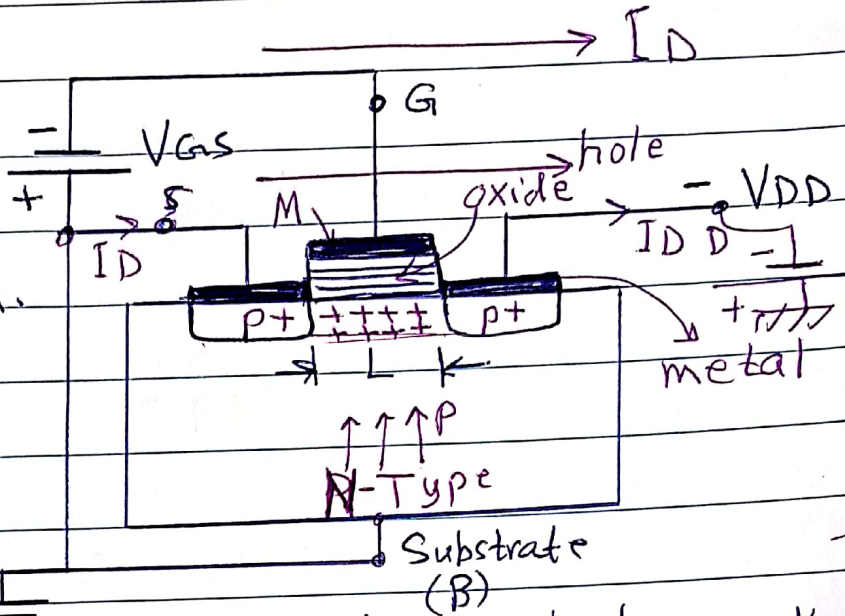 ID
G
- VGS
+
hole
oxide
S
M
- VDD
ID
ID D -
+
P+ ++++ P+
++++
L
metal
P
N-Type
Substrate
(B)